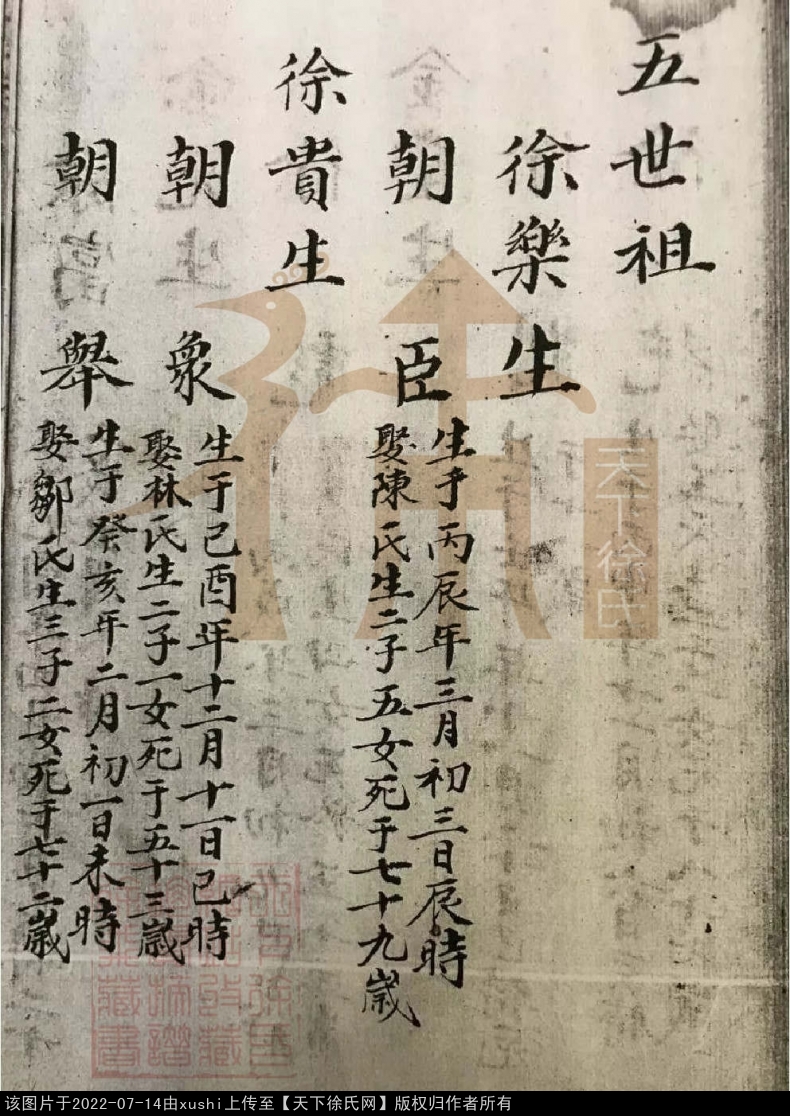 五世祖
徐樂生
朝臣
生于丙辰年三月初三日辰時
娶陳氏生二子五女死于七十九歲
徐貴生
朝衆
生于己酉年十二月十一日巳時
娶林氏生二子一女死于五十三歲
朝舉
生于癸亥年二月初一日未時
娶鄒氏生三子二女死于七十二歲
天下徐氏
该图片于2022-07-14由xushi上传至【天下徐氏网】版权归作者所有